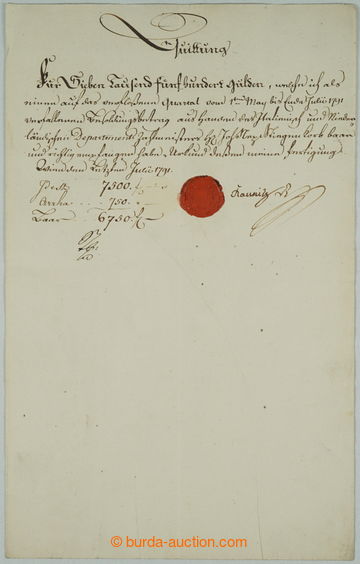 Quittung
Für Sieben Tausend fünfhundert Gülden, welche ich als
einen auf das verflossene Quartal vom 1ten May bis Ende Julii 791
verfallenen Besoldungsbetrag aus Handen des Italienisch und Nieder
ländischen Departements Zahlmeisters baar
und richtig empfangen habe. Urkund dessen meine Fertigung.
Wien den letzten Julii 791.
7500.
Arrha 750.
Baar 6750.
Kaunitz R
burda-auction.com